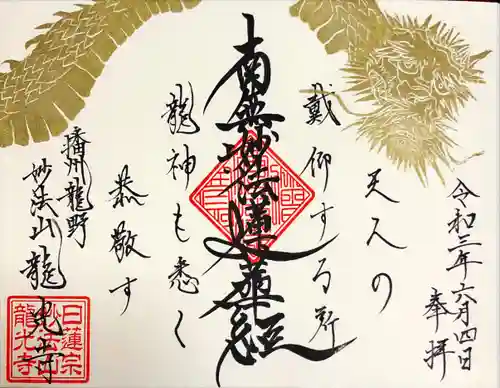 令和三年六月四日
奉拝
天人の
戴仰する所
南無妙法蓮華経
龍神も悉く
恭敬す
播州龍野
妙法山龍光寺
日蓮宗
妙法山
龍光寺